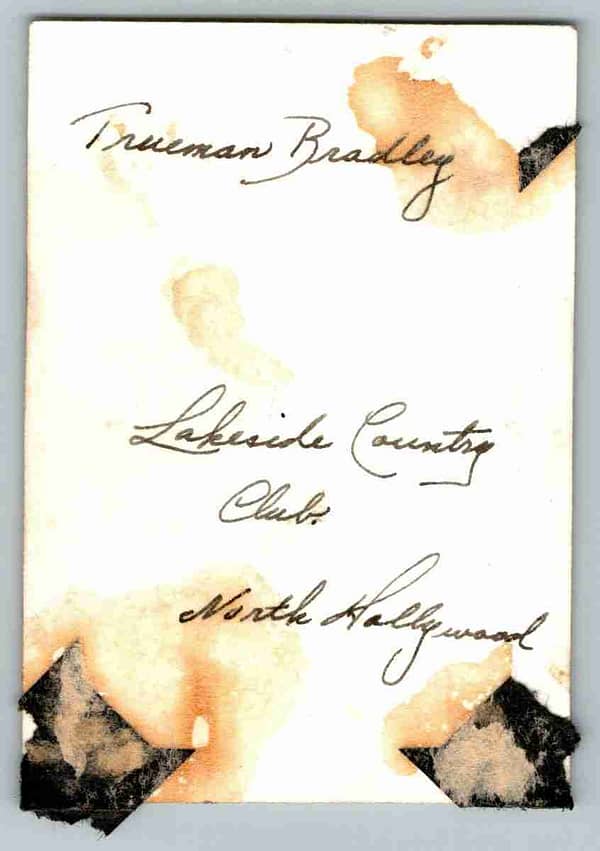 Trueman Bradley
Lakeside Country
Club.
North Hollywood